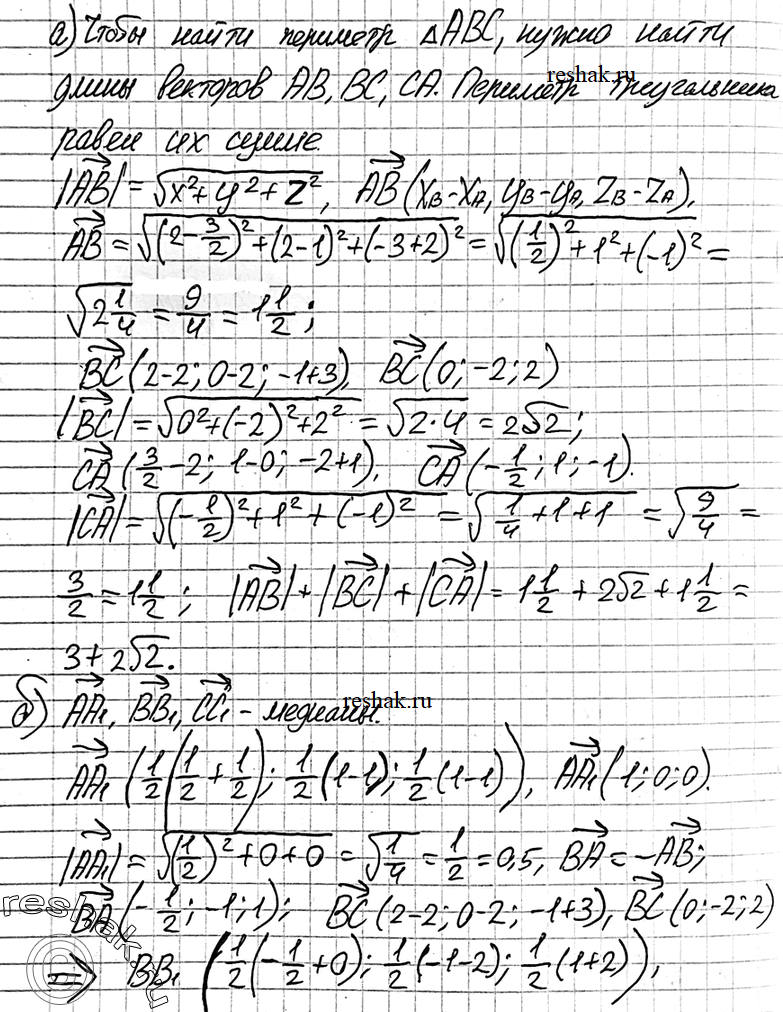 а) Чтобы найти периметр ΔABC, нужно найти
reshak.ru
длины векторов AB, BC, CA. Периметр треугольника
равен их сумме.
|AB| = √(x²+y²+z²), AB(xB-xA, yB-yA, zB-zA).
AB = √((2-3/2)²+(2-1)²+(-3+2)²) = √((1/2)²+1²+(-1)²) =
√(2 1/4) = 9/4 = 1 1/2;
BC(2-2; 0-2; -1+3), BC(0; -2; 2)
|BC| = √(0²+(-2)²+2²) = √(2·4) = 2√2;
CA(3/2-2; 1-0; -2+1), CA(-1/2; 1; -1).
|CA| = √((-1/2)²+1²+(-1)²) = √(1/4+1+1) = √(9/4) =
3/2 = 1 1/2; |AB|+|BC|+|CA| = 1 1/2 + 2√2 + 1 1/2 =
3+2√2.
reshak.ru
б) AA₁, BB₁, CC₁ - медианы.
AA₁(1/2(1/2+1/2); 1/2(1-1); 1/2(1-1)), AA₁(1; 0; 0).
|AA₁| = √((1/2)²+0+0) = √(1/4) = 1/2 = 0,5, BA = -AB;
BA(-1/2; -1; 1); BC(2-2; 0-2; -1+3), BC(0; -2; 2)
⇒ BB₁(1/2(-1/2+0); 1/2(-1-2); 1/2(1+2)),
reshak.ru